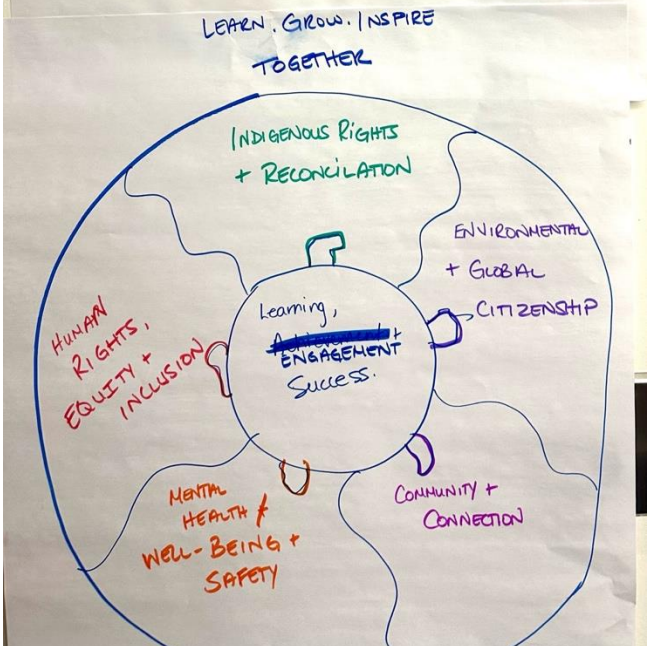 LEARN. GROW. INSPIRE
TOGETHER
INDIGENOUS RIGHTS
+ RECONCILATION
ENVIRONMENTAL
+ GLOBAL
CITIZENSHIP
Learning,
Achievement +
ENGAGEMENT
Success.
HUMAN
RIGHTS,
EQUITY +
INCLUSION
MENTAL
HEALTH +
WELL-BEING +
SAFETY
COMMUNITY +
CONNECTION